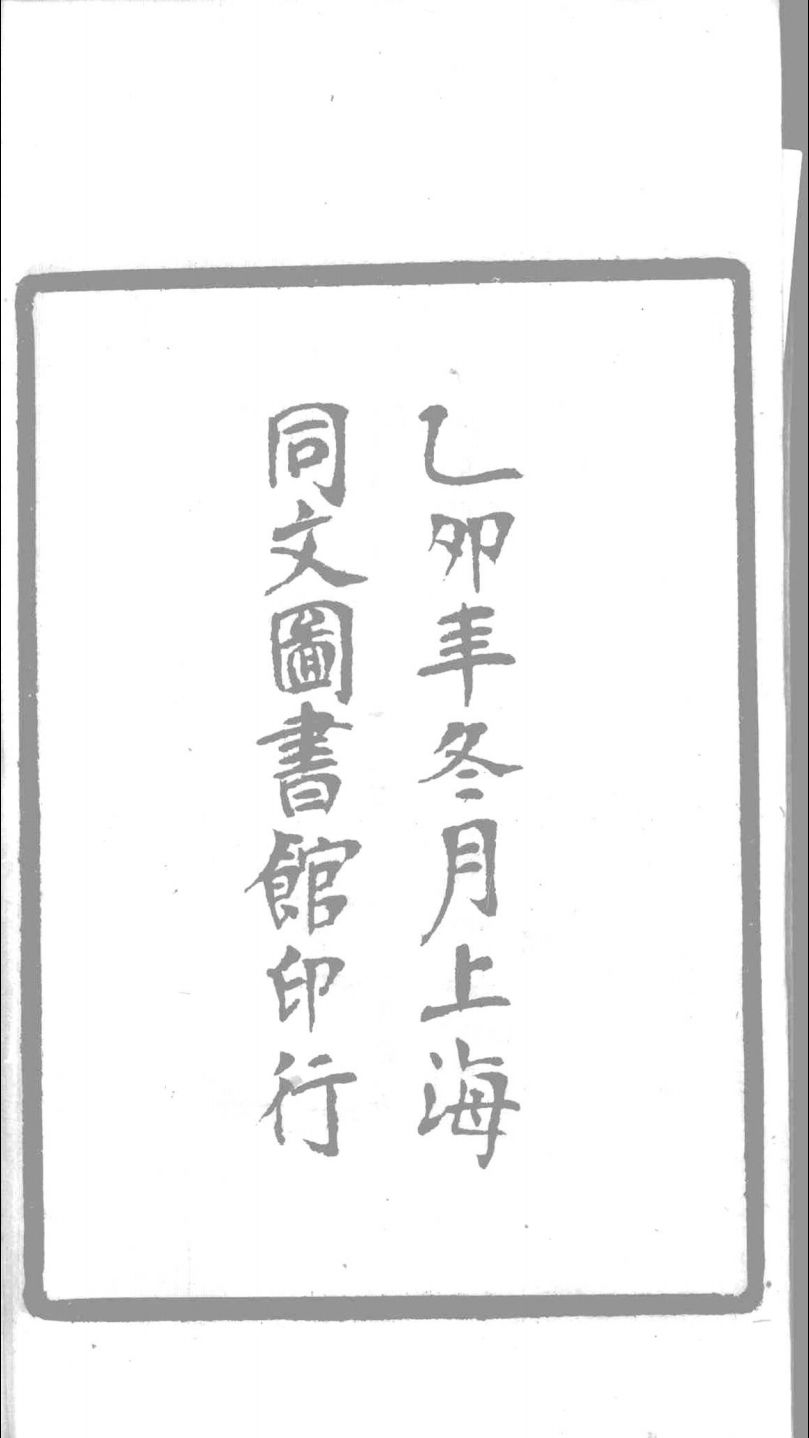 乙卯年冬月上海
同文圖書館印行